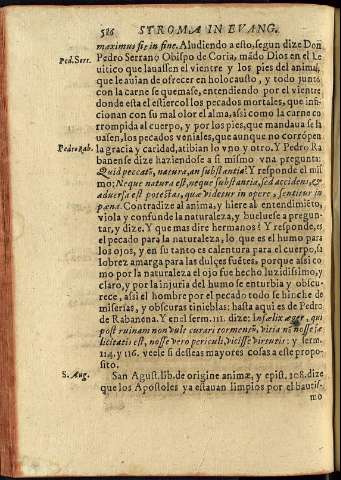 586 STROMA IN EVANG.
maximus sit in fine. Aludiendo a esto, segun dize Don
Ped. Serr. Pedro Serrano Obispo de Coria, mãdo Dios en el Le
uitico que lauassen el vientre y los pies del animal
que le auian de ofrecer en holocausto, y todo junto
con la carne se quemase, entendiendo por el vientre
donde esta el estiercol los pecados mortales, que infi-
cionan con su mal olor el alma, assi como la carne co
rrompida al cuerpo, y por los pies, que mandaua se la
uassen, los pecados veniales, que aunque no corrõpen
Pedro Rab. la gracia y caridad, atibian lo vno y otro. Y Pedro Ra
banense dize haziendose a si mismo vna pregunta:
Quid peccatũ, natura, an substantia? Y responde el mis
mo; Neque natura est, neque substantia, sed accidens, &
aduersa est potestas, quæ videtur in opere, sentitur in
pœna. Contradize al anima, y hiere al entendimiẽto,
viola y confunde la naturaleza, y bueluese a pregun-
tar, y dize. Y que mas dire hermanos? Y responde, es
el pecado para la naturaleza, lo que es el humo para
los ojos, y en su tanto es calentura para el cuerpo, sa
lobrez amarga para las dulçes fuẽtes, porque assi co
mo por la naturaleza el ojo fue hecho luzidissimo, y
claro, y por la injuria del humo se enturbia y obscu-
rece, assi el hombre por el pecado todo se hinche de
miserias, y obscuras tinieblas: hasta aqui es de Pedro
de Rabanena. Y en el serm. 111. dize: Infælix æger, qui
post ruinam non vult curari tormentũ, vitia nũ nosse fæ
licitatis est, nosse vero periculi, vicisse virtutis: y serm.
114. y 116. veele si desseas mayores cosas a este propo-
sito.
S. Aug. San Agust. lib. de origine animæ, y epist. 108. dize
que los Apostoles ya estauan limpios por el bautis-
mo